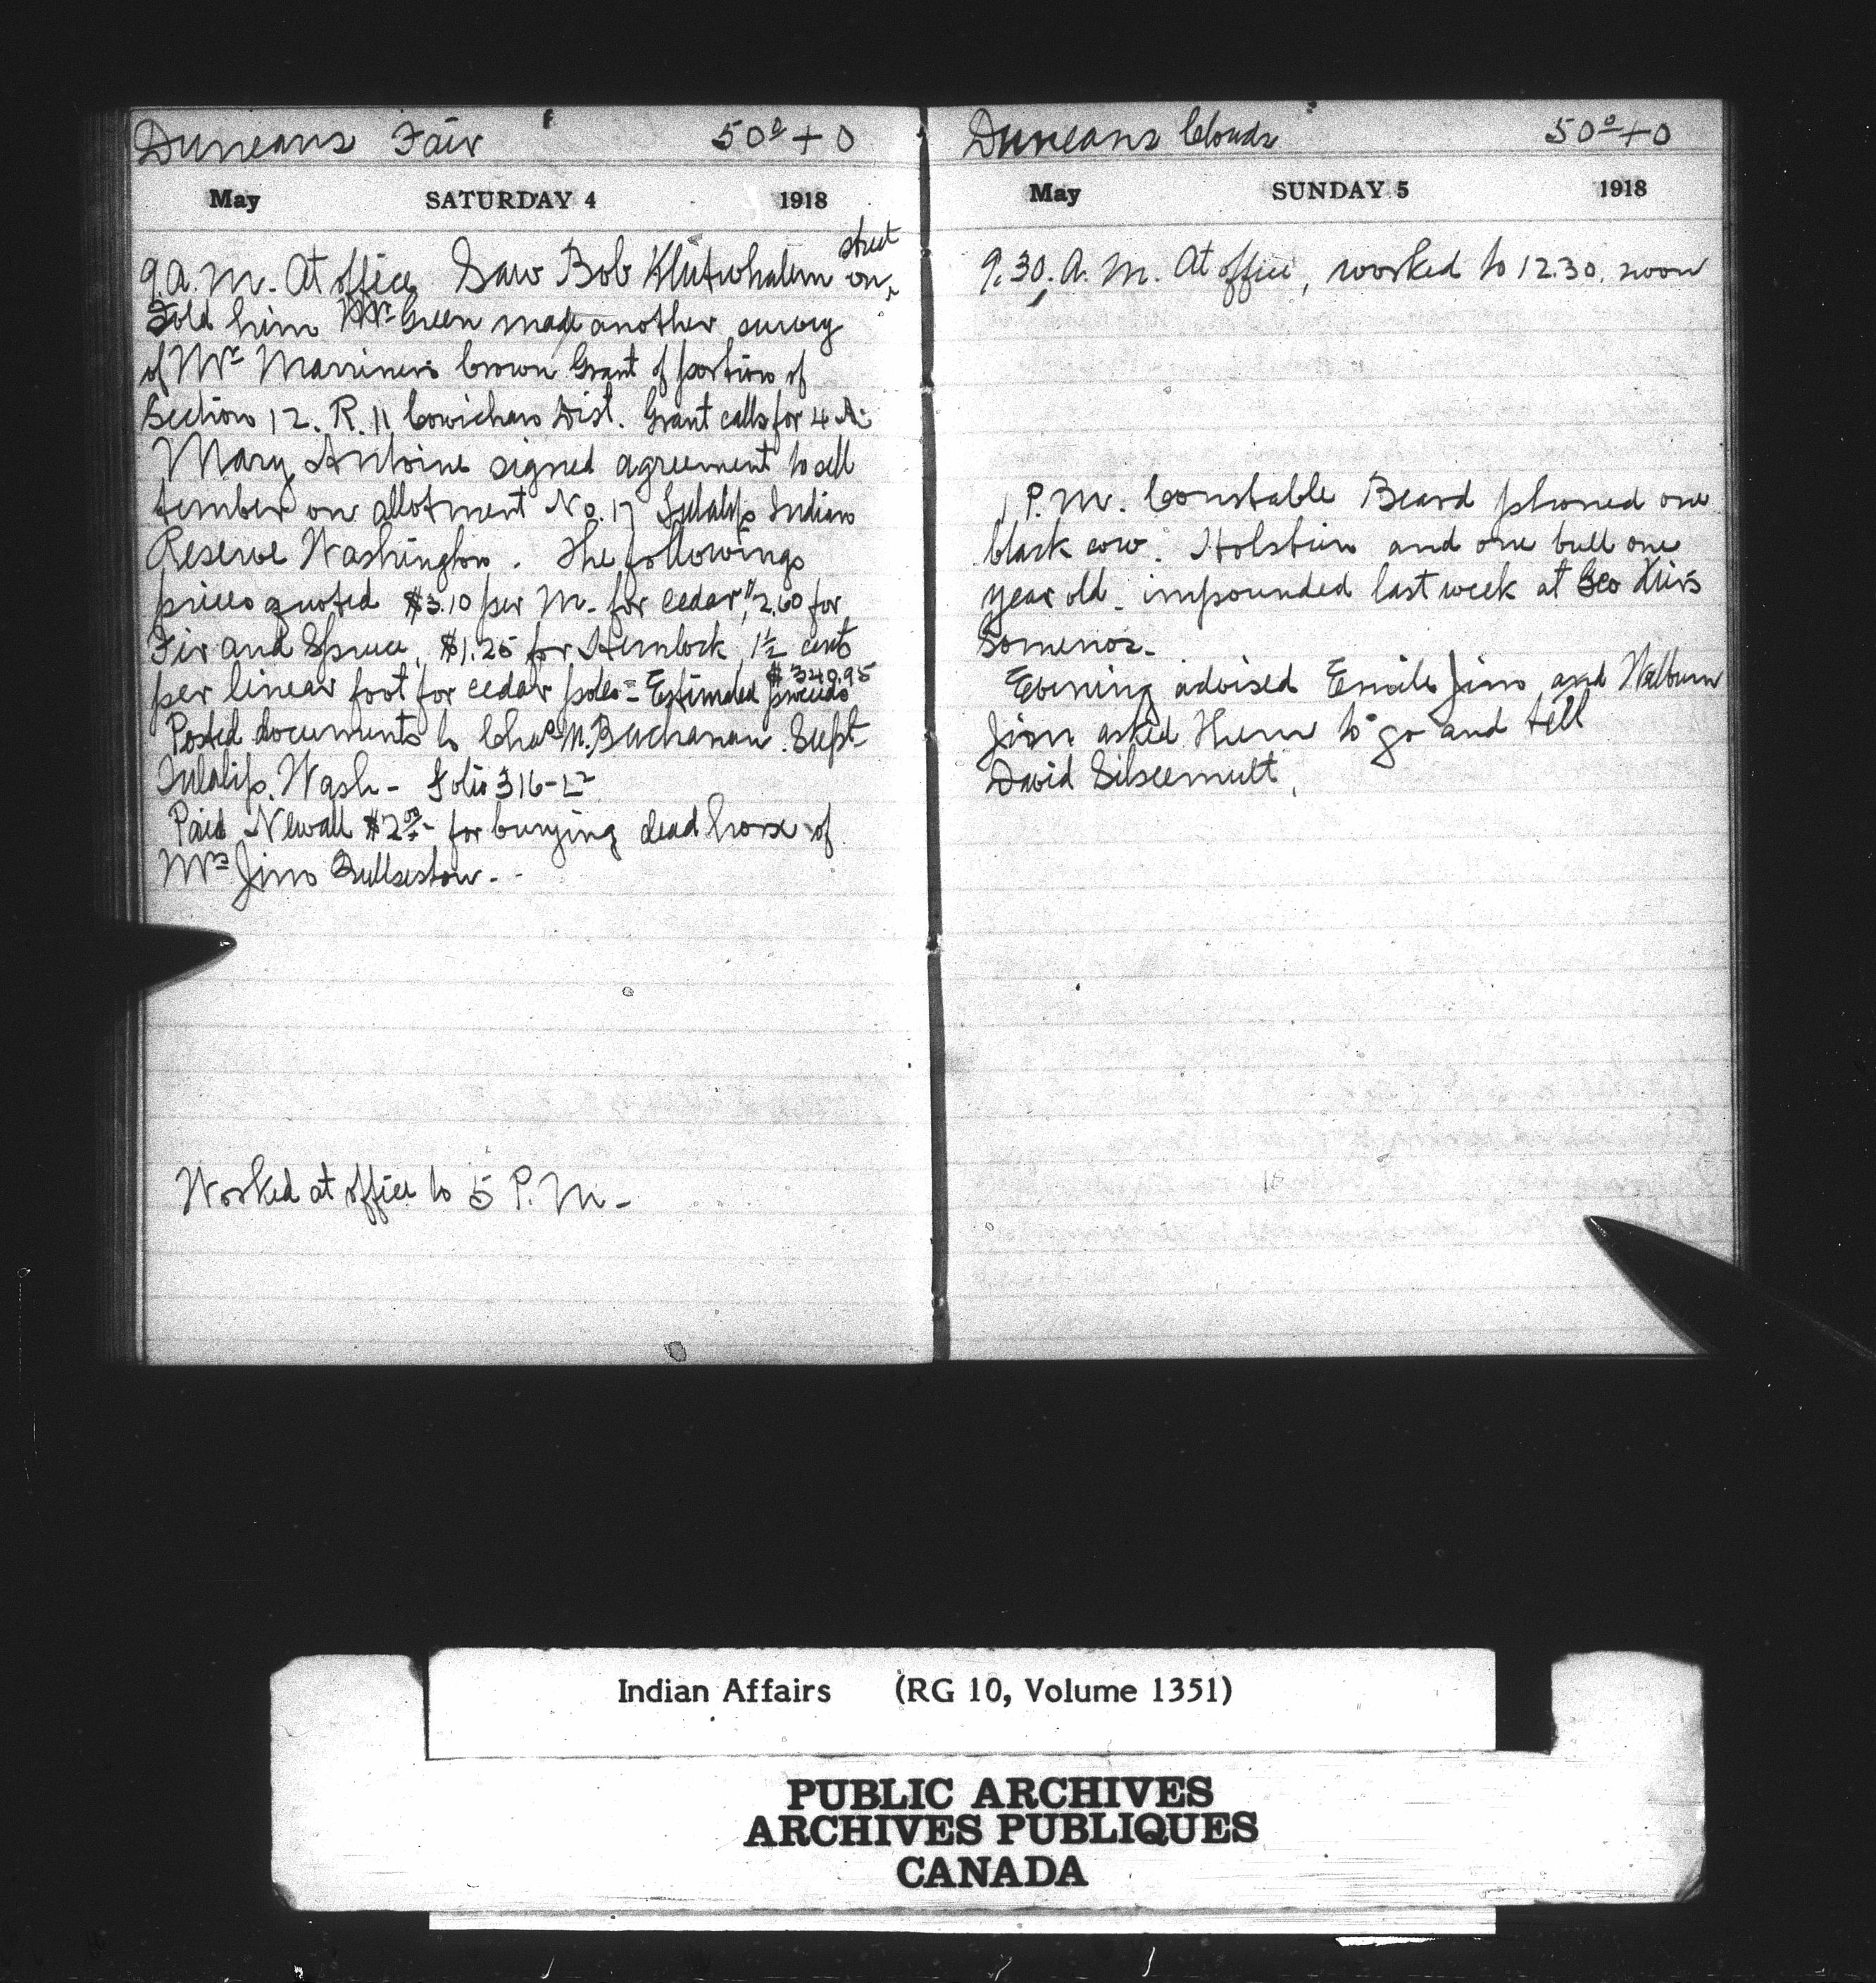 Duncans Fair 50° + 0
May SATURDAY 4 1918
9. A. M. At office Saw Bob Klutwhalem on street
Told him Mr Green made another survey
of Mr Marriners Crown Grant of portion of
Section 12. R. 11 Cowichan Dist. Grant calls for 4 A.
Mary Antoine signed agreement to sell
timber on allotment No. 17 Tulalip Indian
Reserve Washington. The following
prices quoted $3.10 per M. for cedar, $2.60 for
Fir and Spruce, $1.25 for Hemlock, 1½ cents
per linear foot for cedar poles - Estimated proceeds $340.95
Posted documents to Chas M. Buchanan. Supt
Tulalip. Wash - Folio 316-
Paid Newall $2.00 - for burying dead horse of
Mrs Jim
Worked at office to 5 P. M -
Duncans Clouds 50° + 0
May SUNDAY 5 1918
9.30. A. M. At office, worked to 12.30. noon
1 P. M. Constable Beard phoned one
black cow. Holstein and one bull one
year old - impounded last week at Geo
Somenos -
Evening advised Emile Jim and
Jim asked them to go and tell
David
Indian Affairs (RG 10, Volume 1351)
PUBLIC ARCHIVES
ARCHIVES PUBLIQUES
CANADA